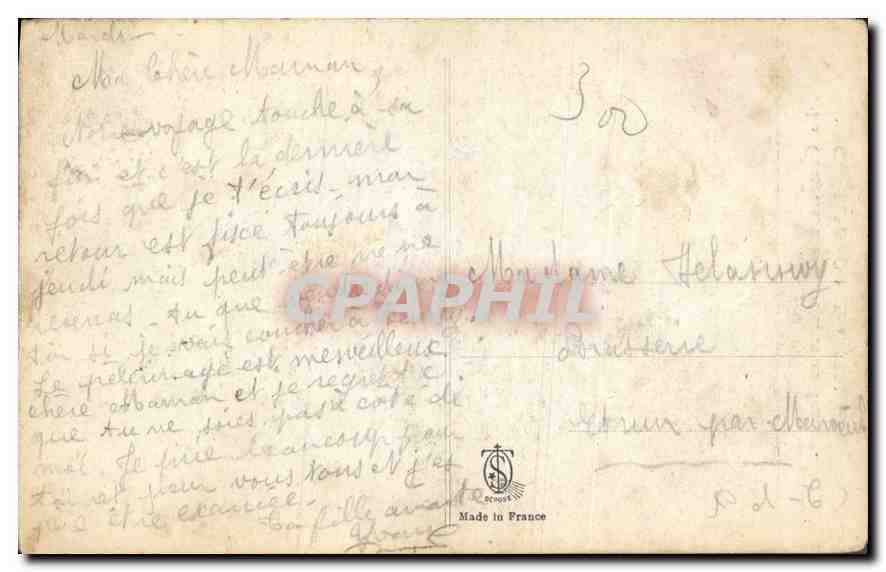 Mardi
Ma Chère Maman,
Notre voyage touche à sa
fin et c'est la dernière
fois que je t'écris - mon
retour est fixé toujours à
jeudi mais peut-être ne me
reverras - tu que
soir si je vais coucher à
Le pelerinage est merveilleux
chère Maman et je regrette
que tu ne sois pas à coté de
moi. Je prie beaucoup pour
toi et pour vous tous et j'es
père être exaucée.
Ta fille aimante
Yvonne
300
Madame
Brasserie
par
P-d-C
CPAPHIL
DÉPOSÉ
Made in France